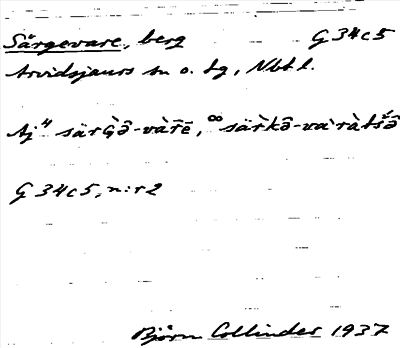 Särgevare, berg G 34c5
Arvidsjaurs sn o. tg, Nbt l.
Aj⁴ särG̀ô-vàr̄ē, ∞ särkô-varàtšô
G 34c5, n:r 2
Björn Collinder 1937